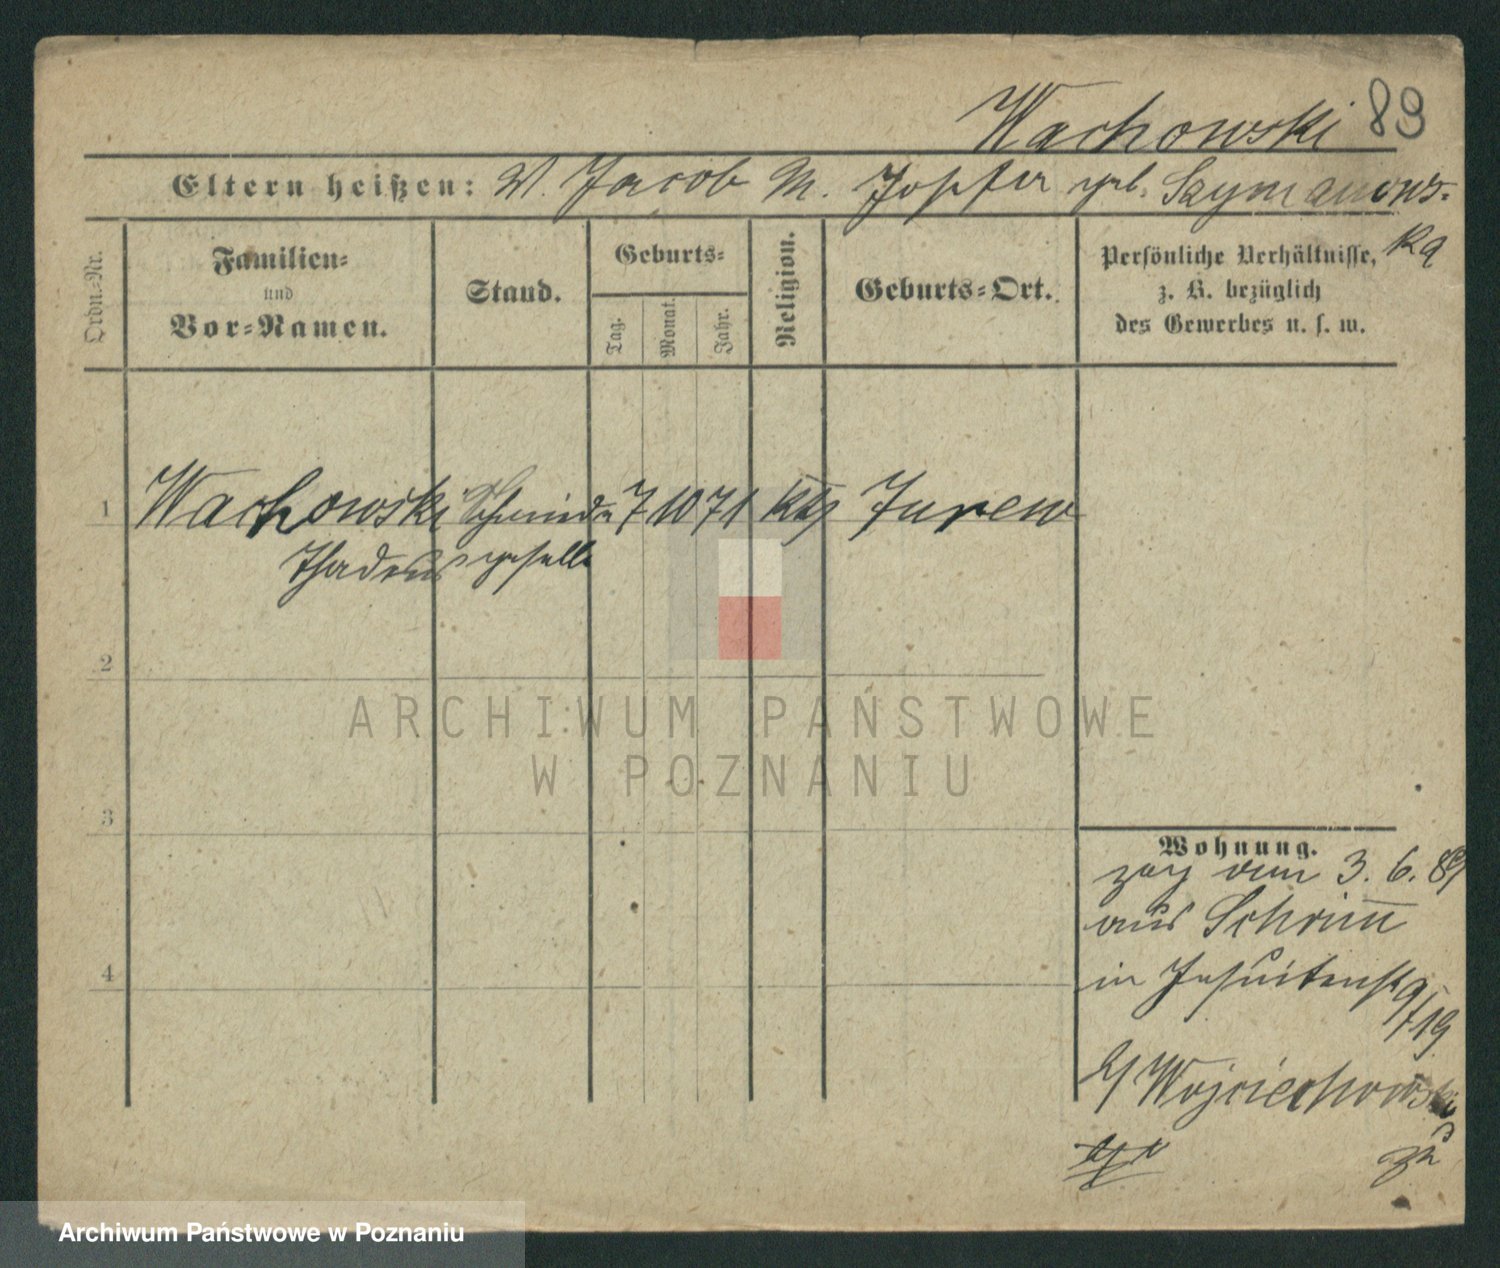 Wachowski 89
Eltern heißen: V. Jacob M. Josefa geb. Szymanows-
ka
Ordn.-Nr.
Familien-
und
Vor-Namen.
Stand.
Geburts-
Tag.
Monat.
Jahr.
Religion.
Geburts-Ort.
Persönliche Verhältnisse,
z. B. bezüglich
des Gewerbes u. s. w.
1 Wachowski Schmiede 7 10 71 kth Jurew
Thadeus geselle
2
3
4
Wohnung.
zog am 3. 6. 89
aus Schrim̅
in Jesuitenstr 9/19
b/ Wojciechowski
zu
ARCHIWUM PAŃSTWOWE
W POZNANIU
Archiwum Państwowe w Poznaniu